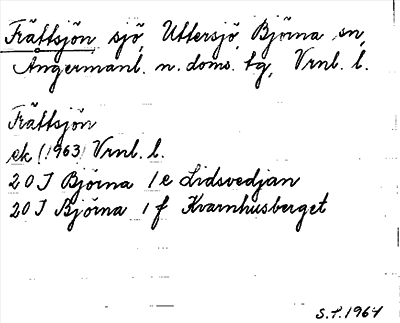 Frättsjön, sjö, Uttersjö, Björna sn,
Ångermanl. n. doms. tg, Vrnl. l.
Frättsjön
ek (1963) Vrnl. l.
20 I Björna 1 e Lidsvedjan
20 I Björna 1 f Kvarnhusberget
S.T. 1967